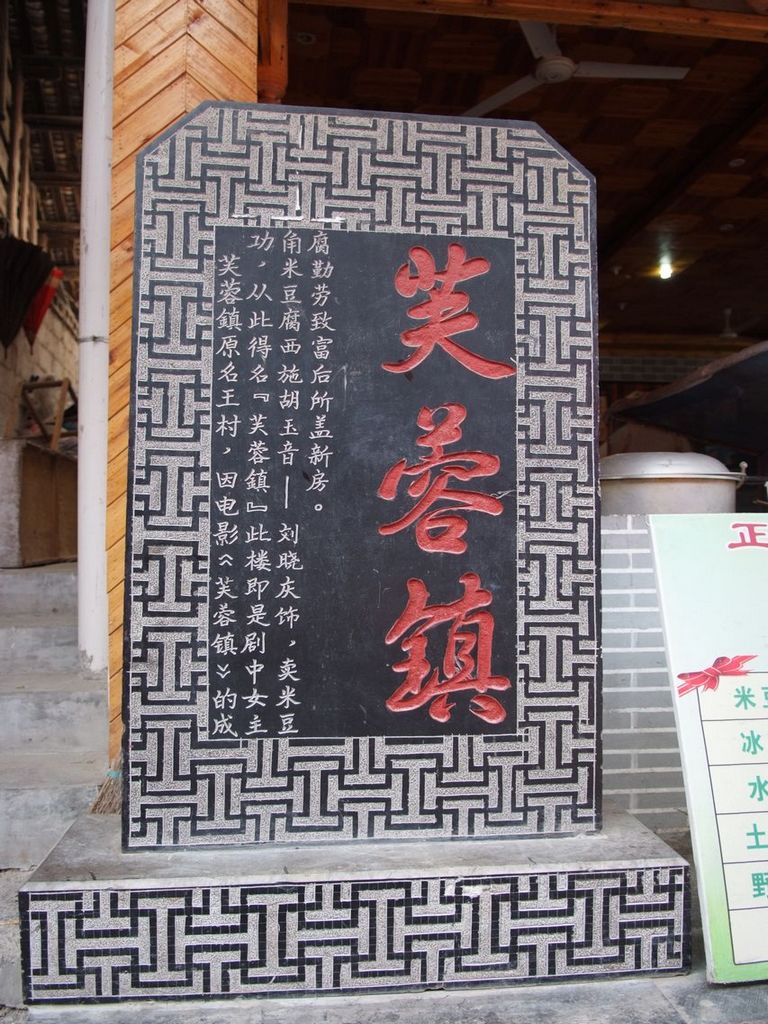 芙蓉鎮
芙蓉鎮原名王村，因电影《芙蓉镇》的成
功，从此得名『芙蓉鎮』此楼即是剧中女主
角米豆腐西施胡玉音——刘晓庆饰，卖米豆
腐勤劳致富后所盖新房。
正
米豆
冰
水
土
野